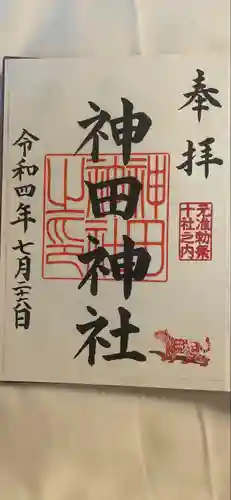 奉拝
元准勅祭
十社之内
神田神社
令和四年七月二六日